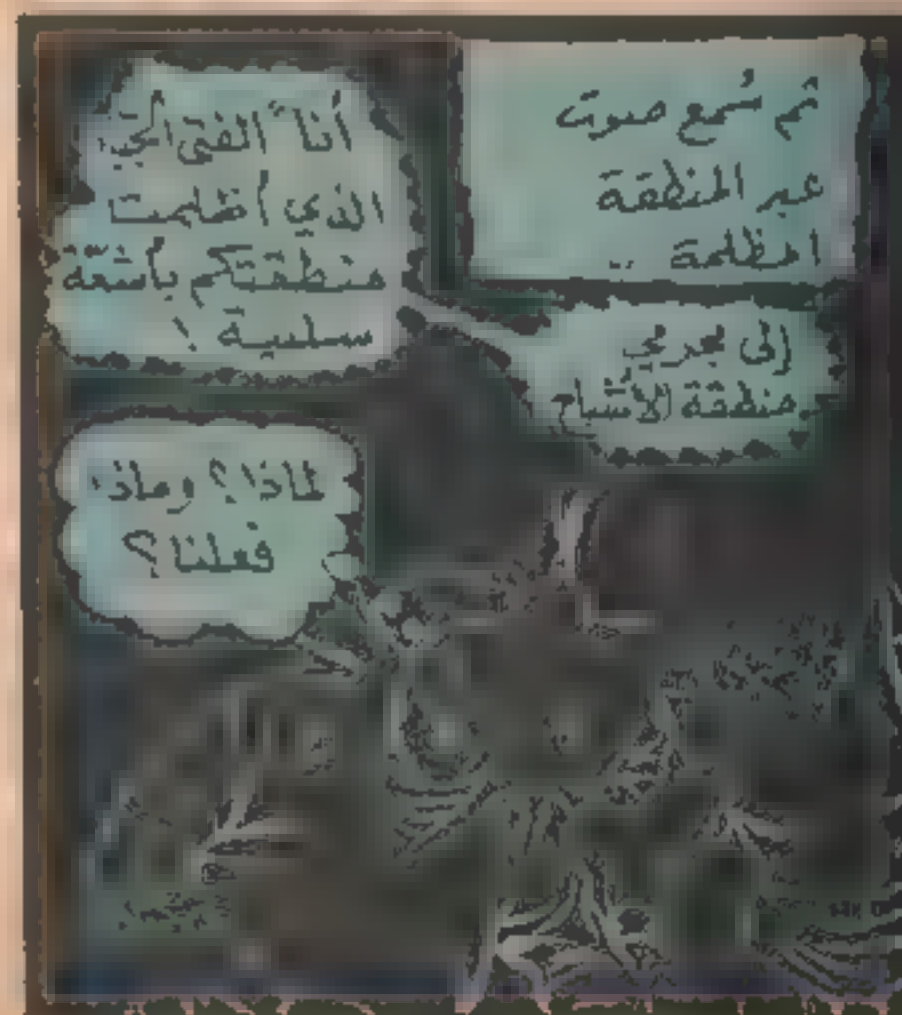 ثم سُمع صوت
عبر المنطقة
المظلمة ..
إلى مجرمي
منطقة الأشباح
أنا الفتى الجي
الذي أظلمت
منطقتكم بأشعّة
سلبية !
لماذا؟ وماذا
فعلنا؟